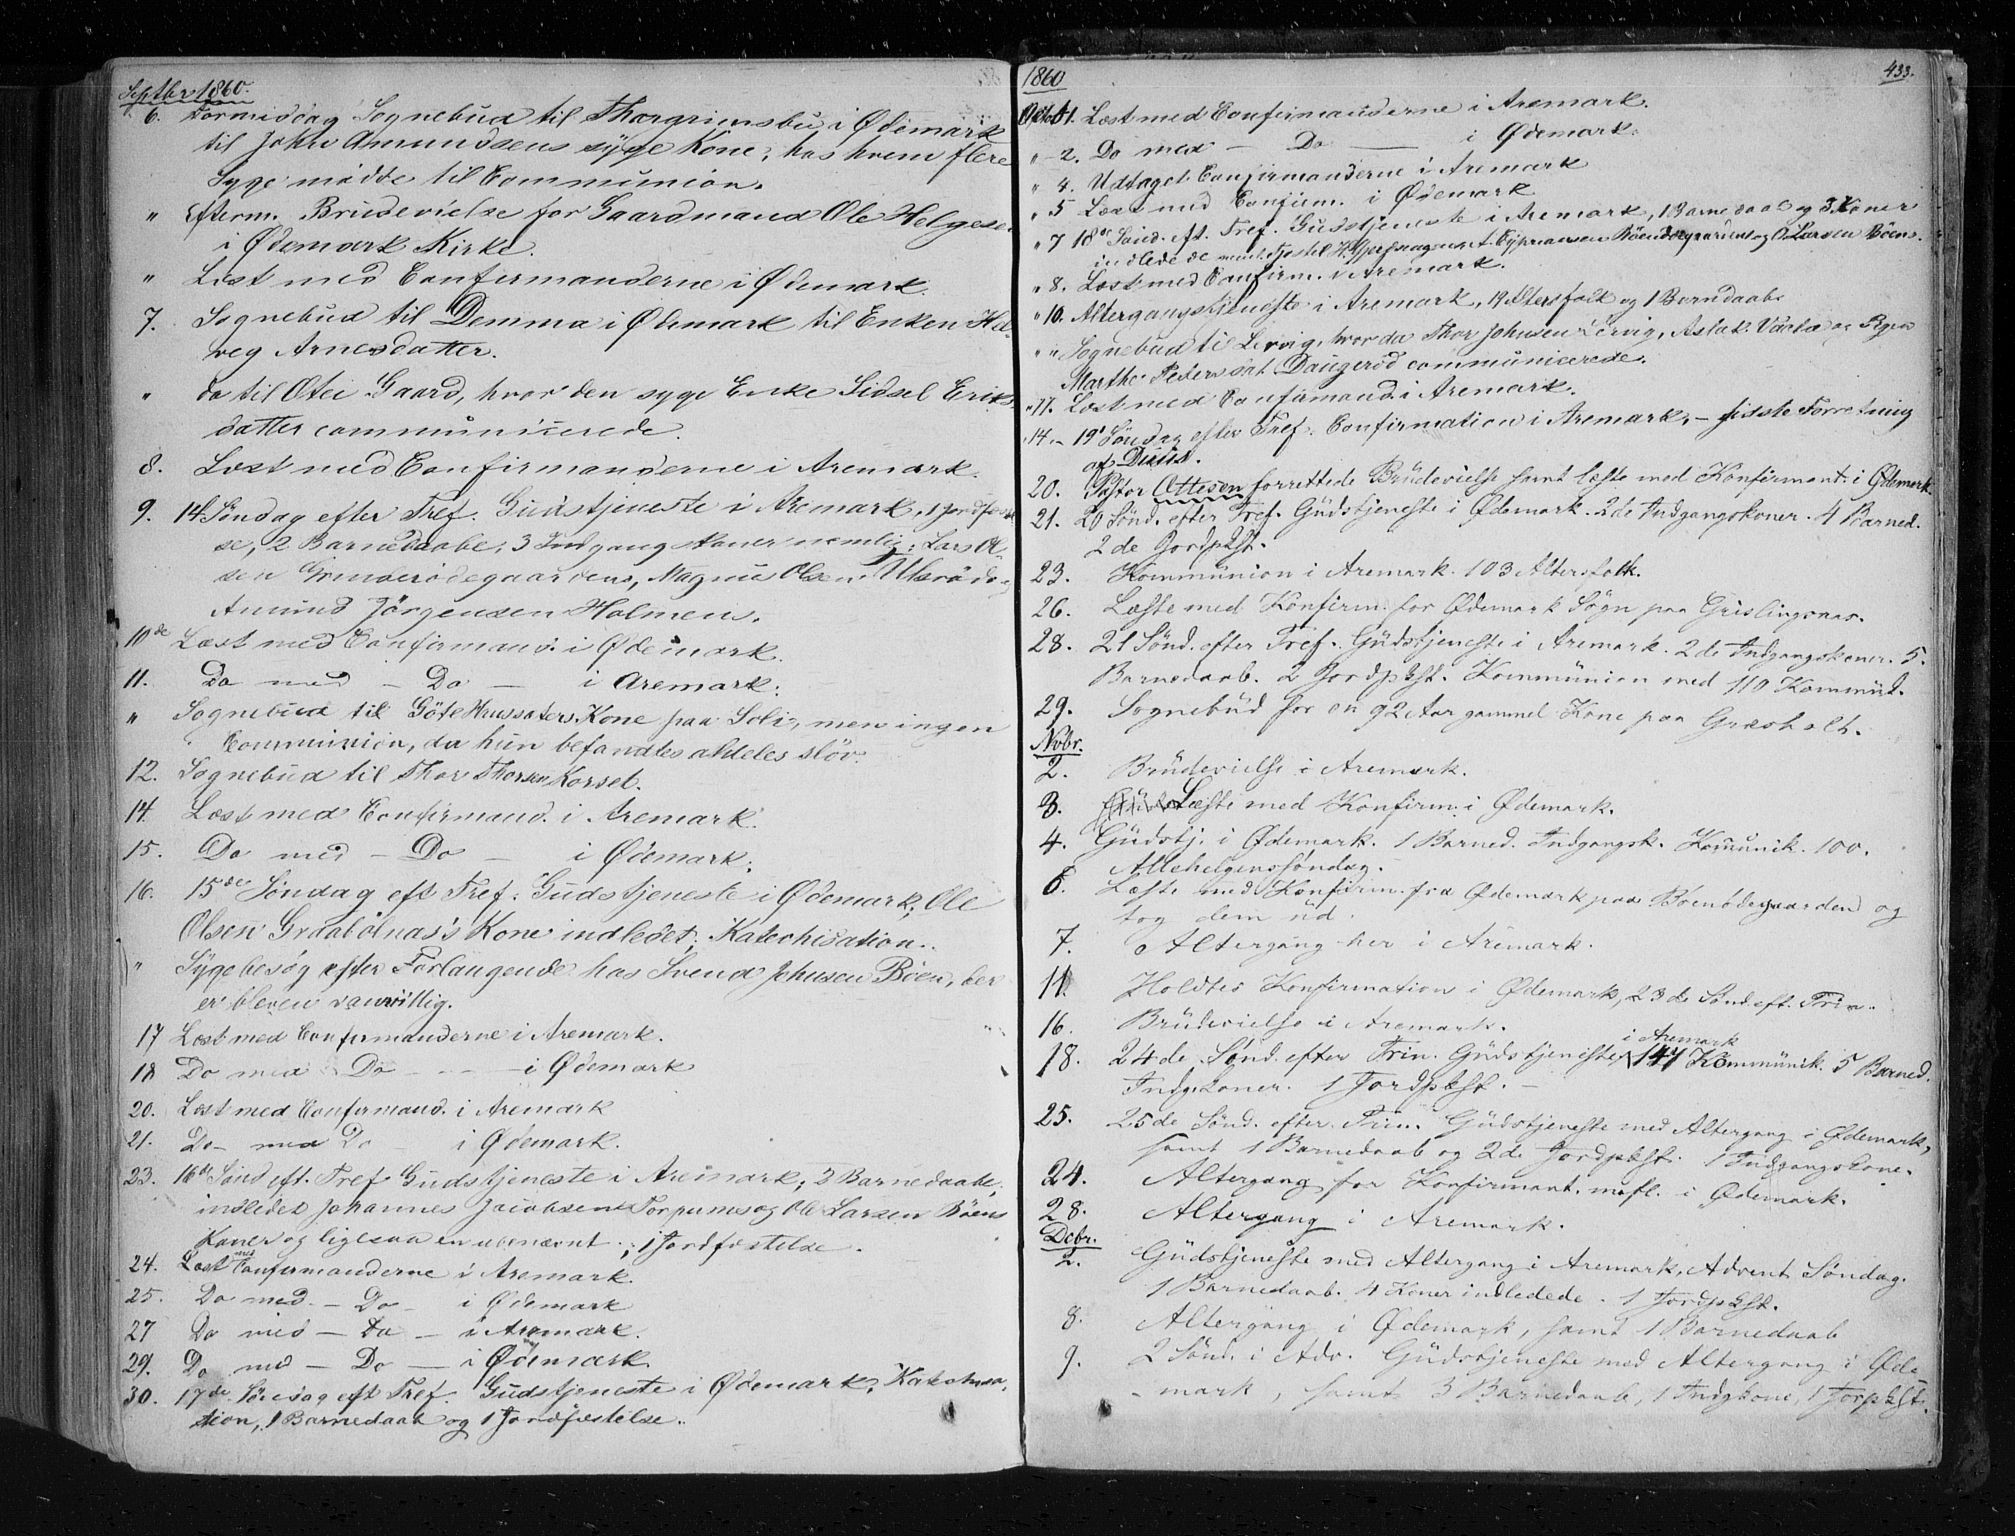 Septbr 1860.
6. Formiddag Sognebud til Thorgrimsbu i Ødemark
til John Amundsens syge Kone, hos hvem flere
Syge mödte til Communion.
" Efterm. Brudevielse for Gaardmand Ole Helgesen
i Ødemark Kirke.
" Læst med Confirmanderne i Ødemark.
7. Sognebud til Demma i Ødemark til Enken Hel-
veg Arnesdatter.
" do til Otei Gaard, hvor den syge Enke Sidsel Eriks
datter communicerede.
8. Læst med Confirmanderne i Aremark.
9. 14 Söndag efter Tref. Gudstjeneste i Aremark, 1 Jordfæstel
se, 2 Barnedaabe, 3 Indgangskoner nemlig: Lars Ol
sen Grinderödegaardens, Magnus Olsen Ulsröd og
Amund Jörgensen Holmen.
10de Læst med Confirmand. i Ødemark.
11. Do med - Do - i Aremark.
" Sognebud til Göte Hussøters Kone paa Soli, men ingen
Communion, da hun befandtes aldeles slöv.
12. Sognebud til Thor Thorsen Korset.
14. Læst med Confirmand. i Aremark.
15. Do med - Do - i Ødemark.
16. 15de Söndag eft Tref. Gudstjeneste i Ødemark, Ole
Olsen Graabölnæs's Kone indledet; Katechisation.
" Sygebesøg efter Forlangende hos Svend Johnsen Böen, der
er bleven vanvittig.
17 Læst med Confirmanderne i Aremark.
18 Do med Do - - - i Ødemark
20. Læst med Confirmand. i Aremark
21. Do - med Do i Ødemark.
23. 16de Sönd eft. Tref Gudstjeneste i Aremark; 2 Barnedaabe,
indledet Johannes Jacobsen Torpums og Ole Larsen Böens
Koner og ligesaa en ubenævnt; 1 Jordfæstelse.
24. Læst med Confirmanderne i Aremark.
25. Do med - Do - i Ødemark
27 Do med - Do - i Aremark.
29. Do med - Do - i Ødemark.
30. 17de Söndag eft Tref. Gudstjeneste i Ødemark, Katechisa-
tion, 1 Barnedaab og 1 Jordfæstelse.
1860 433.
Oktob 1. Læst med Confirmanderne i Aremark.
" 2. Do med - Do - i Ødemark.
" 4. Udtaget Confirmanderne i Aremark
" 5 Læst med Confirm. i Ødemark
" 7 18de Sönd. eft. Tref. Gudstjeneste i Aremark, 1 Barnedaab og 3 Koner
indledede Cyprian Böendegaardens og O. Larsen Böens.
" 8. Læst med Confirm. i Aremark.
" 10. Altergangstjeneste i Aremark, 19 Altersfolk og 1 Barndaab
" " Sognebud til Lervig, hvor da Thor Johnsen Lervig, Aslak og Pigen
Marthe Pedersdat Daugeröd communicerede.
" 11. Læst med Confirmand. i Aremark.
" 14. 19' Söndag efter Tref. Confirmation i Aremark, - sidste Forretning
af Duus.
20. Pastor Ottesen forrettede Brudevielse samt læste med Konfirmant. i Ødemark
21. 20 Sönd. efter Tref. Gudstjeneste i Ødemark. 2de Indgangskoner. 4 Barned.
2de Jordpkst.
23. Kommunion i Aremark. 103 Altersfolk.
26. Læste med Konfirm. for Ødemark Sogn paa Grislingsnæs.
28. 21 Sönd. efter Tref. Gudstjeneste i Aremark. 2de Indgangskoner. 5.
Barnedaab. 2 Jordpkst. Kommunion med 110 Kommuk.
29. Sognebud for en 92 Aar gammel Kone paa Græsholt.
Novbr.
2. Brudevielse i Aremark.
3. Læste med Konfirm. i Ødemark.
4. Gudstj. i Ødemark. 1 Barned. Indgangsk. Komunik. 100.
Allehelgenssöndag.
6. Læste med Konfirm. fra Ødemark paa Böenödegaarden og
tog dem ud.
7. Altergang her i Aremark.
11. Holdtes Konfirmation i Ødemark, 23de Sönd eft. Trin.
16. Brudevielse i Aremark.
18. 24de Sönd. efter Trin. Gudstjeneste i Aremark 147 Kommunik. 5 Barned.
Indg.koner. 1 Jordpkst. -
25. 25de Sönd. efter Trin. Gudstjeneste med Altergang i Ødemark,
samt 1 Barnedaab og 2de Jordpkst. 1 Indgangskone.
24. Altergang for Konfirmant. mfl. i Ødemark.
28. Altergang i Aremark.
Decbr.
2. Gudstjeneste med Altergang i Aremark, Advent Söndag.
1 Barnedaab. 4 Koner indledede. 1 Jordpkst.
8. Altergang i Ødemark, samt 1 Barnedaab
9. 2 Sönd. i Adv. Gudstjeneste med Altergang i Øde
mark, samt 3 Barnedaab, 1 Indgkone, 1 Jorpkst.